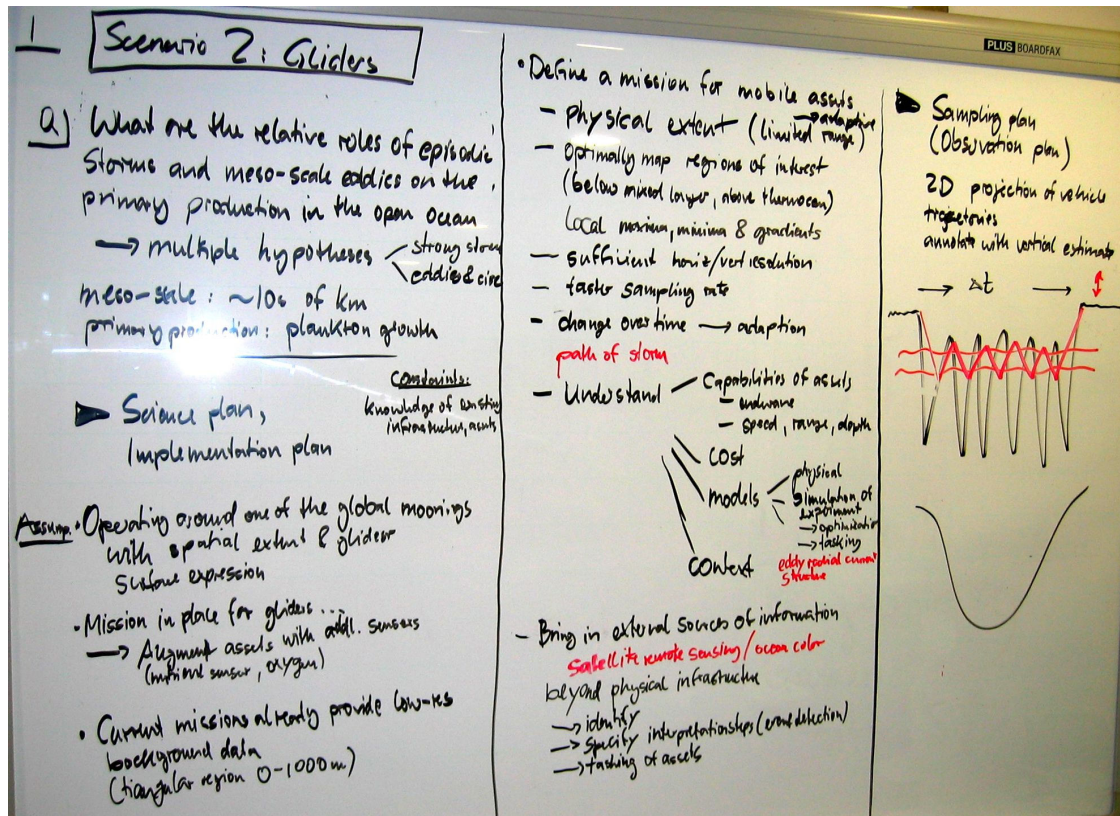 PLUS BOARDFAX
1
Scenario 2: Gliders
a) What are the relative roles of episodic
storms and meso-scale eddies on the
primary production in the open ocean
→ multiple hypotheses
strong storm
eddies & circ
meso-scale: ~10s of km
primary production: plankton growth
Constraints:
knowledge of existing
infrastructure, assets
Science plan,
Implementation plan
Assump. • Operating around one of the global moorings
with spatial extent & gliders
surface expression
• Mission in place for gliders ...
→ Augment assets with addl. sensors
(nutrient sensor, oxygen)
• Current missions already provide low-res
background data
(triangular region 0-1000m)
• Define a mission for mobile assets
→ adaptive
- physical extent (limited range)
- optimally map regions of interest
(below mixed layer, above
local maxima, minima & gradients
- sufficient horiz/vert resolution
- faster sampling rate
- change over time → adaption
path of storm
- Understand
Capabilities of assets
- endurance
- speed, range, depth
cost
models
physical
simulation of
experiment
→ optimization
→ tasking
context
eddy radial current
structure
- Bring in external sources of information
satellite remote sensing / ocean color
beyond physical infrastructure
→ identify
→ specify interpretationships (event detection)
→ tasking of assets
Sampling plan
(Observation plan)
2D projection of vehicle
trajectories
annotate with vertical estimate
→ Δt →